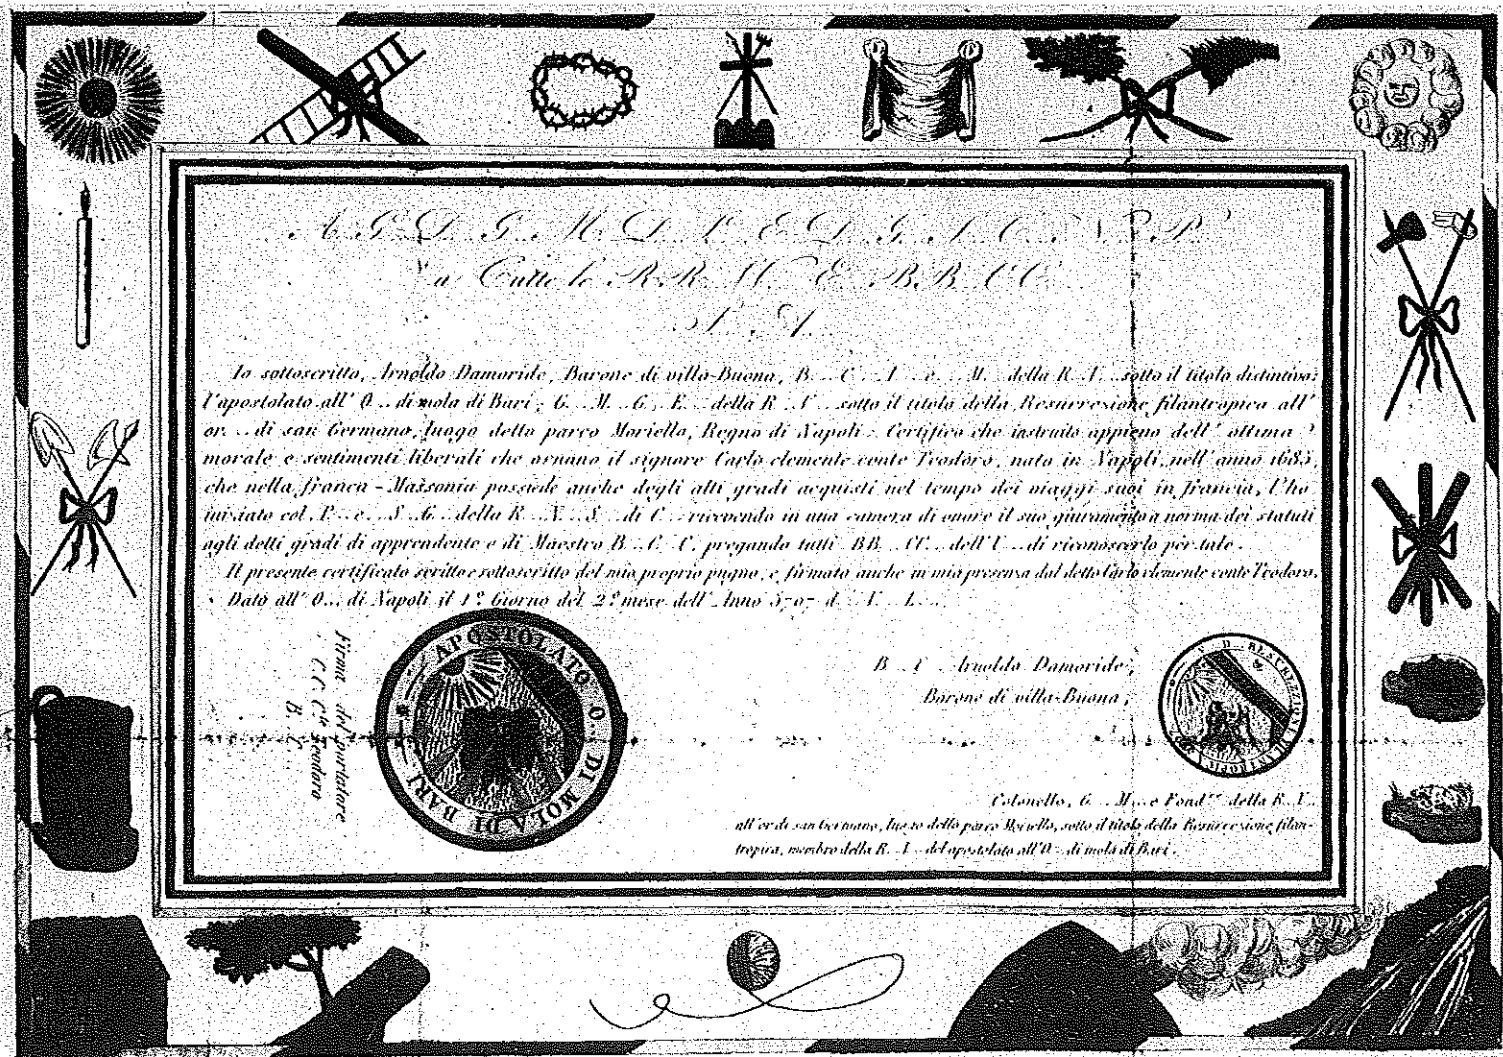 A... G... D... G... M... D... L'... E... D... G... S... C... N... P...
a Tutte le R.R... V.V... E... B.B... C.C...
S... A...
Io sottoscritto, Arnoldo Damoride, Barone di villa-Buona, B... C... I... e... M. della R. V... sotto il titolo distintivo:
l'apostolato all' O... di mola di Bari; G... M... G... E... della R... V... sotto il titolo della Resurrezione filantropica all'
or... di san Germano, luogo detto parco Moriello, Regno di Napoli. Certifico che instruito appieno dell' ottima
morale e sentimenti liberali che ornano il signore Carlo clemente conte Teodoro, nato in Napoli, nell' anno 1685,
che nella franca-Massonia possiede anche degli alti gradi acquisti nel tempo dei viaggi suoi in francia, l'ho
iniziato col... P... e... S... G... della R... N... S... di C... ricevendo in una camera di onore il suo giuramento a norma dei statuti
agli detti gradi di apprendente e di Maestro B... C... C. pregando tutti BB... CC... dell' U... di riconoscerlo per tale.
Il presente certificato scritto e sottoscritto del mio proprio pugno, e firmato anche in mia presenza dal detto Carlo clemente conte Teodoro.
Dato all' O... di Napoli il 1° Giorno del 2° mese dell' Anno 5707 d... V... L...
Firma del portatore
C. C. C.te Teodoro
B. C.
APOSTOLATO O. DI MOLA DI BARI
B... C... Arnoldo Damoride,
Barone di villa-Buona,
Colonello, G... M... e Fond.re della R. V...
all' or di san Germano, luogo detto parco Moriello, sotto il titolo della Resurrezione filan-
tropica, membro della R... V... del apostolato all' O... di mola di Bari.